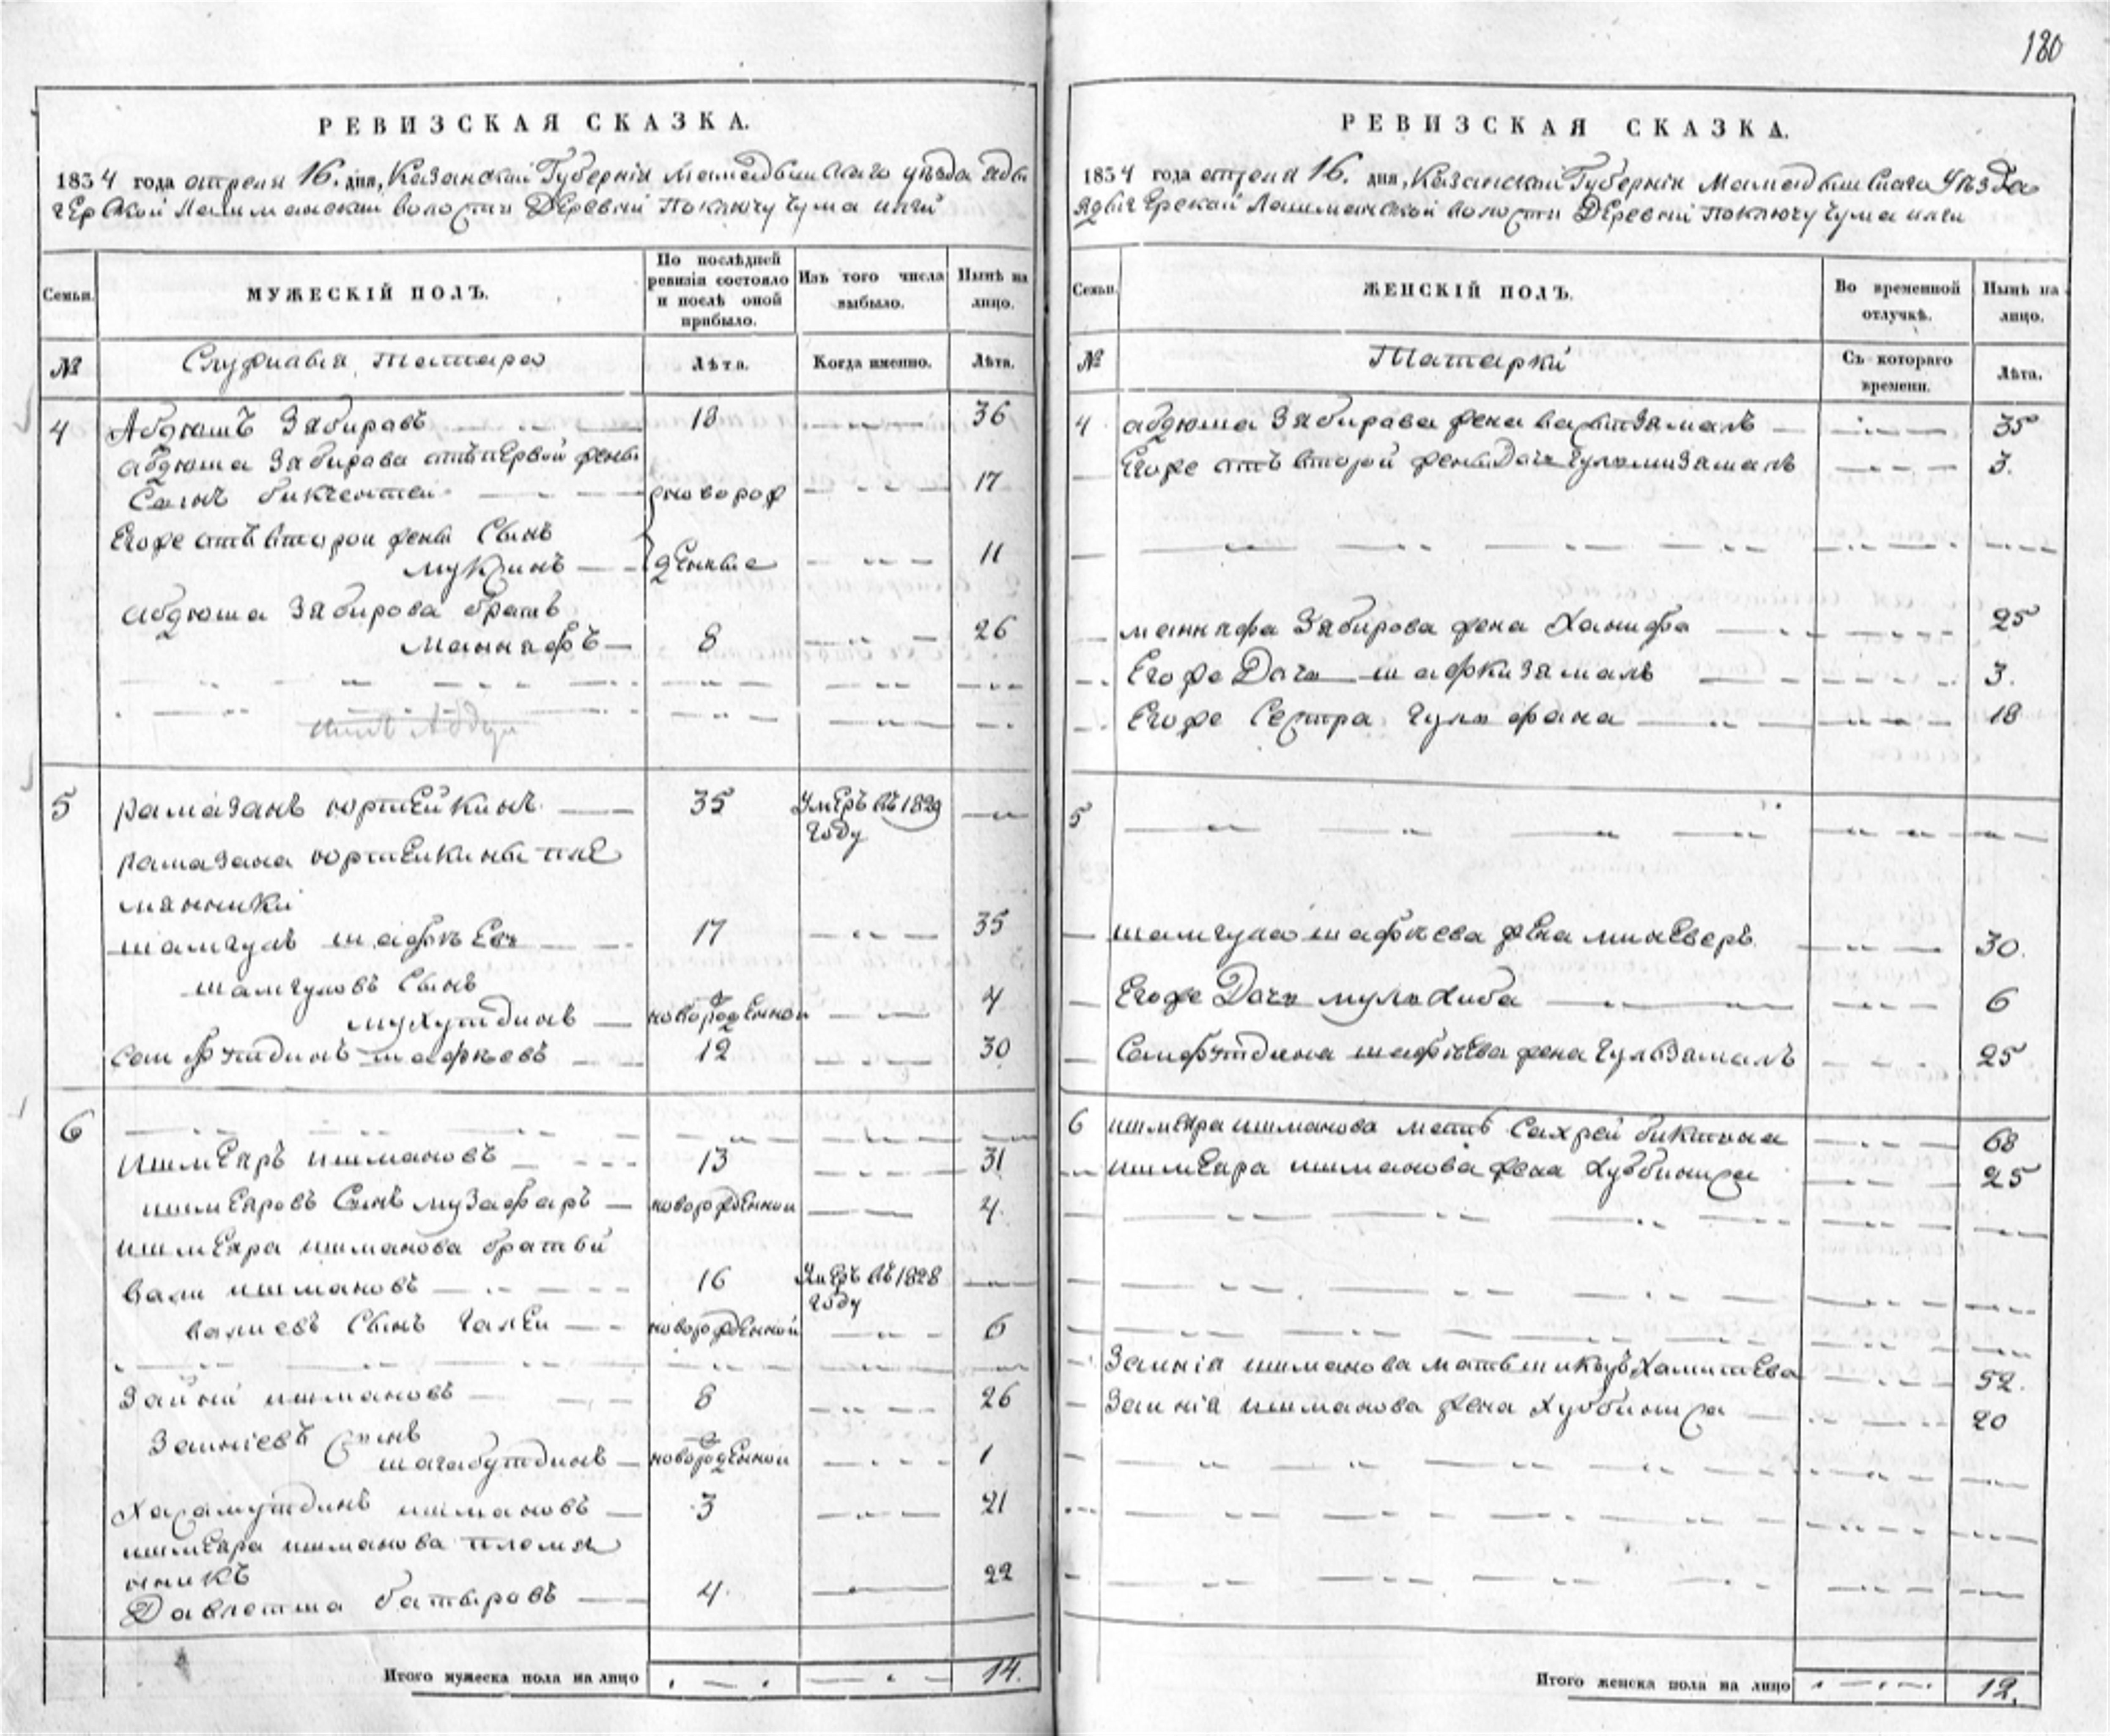 180
РЕВИЗСКАЯ СКАЗКА.
1834 года апреля 16. дня, Казанской Губерніи Мамадышскаго уѣзда
Лашманской волости Деревни
Семьи.
МУЖЕСКІЙ ПОЛЪ.
По послѣдней ревизіи состояло и послѣ оной прибыло.
Изъ того числа выбыло.
Нынѣ на лицо.
№
татара
Лѣта.
Когда именно.
Лѣта.
4 Абдюшъ Забировъ 18 36
абдюша Забирова отъ первой жены
Сынъ биктентеи новорож 17
Егоже отъ второи жены Сынъ
мукминъ денные 11
абдюша Забирова братъ
маннафъ 8 26
5 рамазанъ юртейкинъ 35 Умеръ въ 1829 году
рамазана юртеикины пле
мянники
шамгулъ шафкѣевъ 17 35
шамгуловъ Сынъ
мухутдинъ новорожденной 4
сеифутдинъ шафкѣевъ 12 30
6
ишмеяръ ишмановъ 13 31
ишмеяровъ Сынъ музафаръ новорожденной 4
ишмеяра ишманова братьи
вали ишмановъ 16 Умеръ въ 1828 году
валиевъ Сынъ галеи новорожденной 6
Займи ишмановъ 8 26
Заиніевъ Сынъ
шагабутдинъ новорожденной 1
ишмановъ 3 21
ишмеяра ишманова племя
нникъ 22
Давлетша батыровъ 4
Итого мужеска пола на лицо 14.
РЕВИЗСКАЯ СКАЗКА.
1834 года апреля 16. дня, Казанской Губерніи Мамадышскаго Уѣзда
Лашманской волости Деревни
Семьи.
ЖЕНСКІЙ ПОЛЪ.
Во временной отлучкѣ.
Нынѣ на лицо.
№
Татарки
Съ котораго времени.
Лѣта.
4 абдюша Забирова жена 35
Егоже отъ второй жены Дочь 3.
маннафа Забирова жена Ханифа 25
Егоже Дочь шафкизямаль 3.
Егоже Сестра гульфана 18
5
шамгула шафкева жена миневеръ 30.
Егоже Дочь 6
Саифутдина шафкева жена гульзамалъ 25
6 ишмеяра ишманова мать Сахрей 68
ишмеяра ишманова жена 25
Заинія ишманова мать Хамитева 52.
Заинія ишманова жена 20
Итого женска пола на лицо 12.